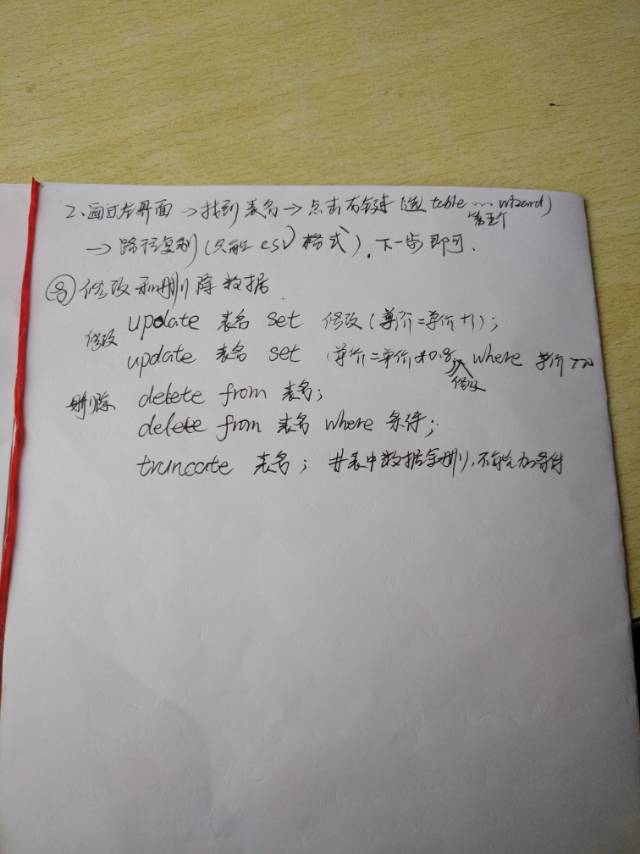 2、通过左界面 →找到 表名 → 点击右键 (选 table … wizard)
第五个
→ 路径复制 (只能 csv 格式), 下一步即可.
⑧ 修改和删除数据
修改 update 表名 set 修改 (单价=单价+1);
update 表名 set (单价=单价*0.8) where 单价>20
修改
删除 delete from 表名;
delete from 表名 where 条件;
truncate 表名; #表中数据全删, 不能加条件